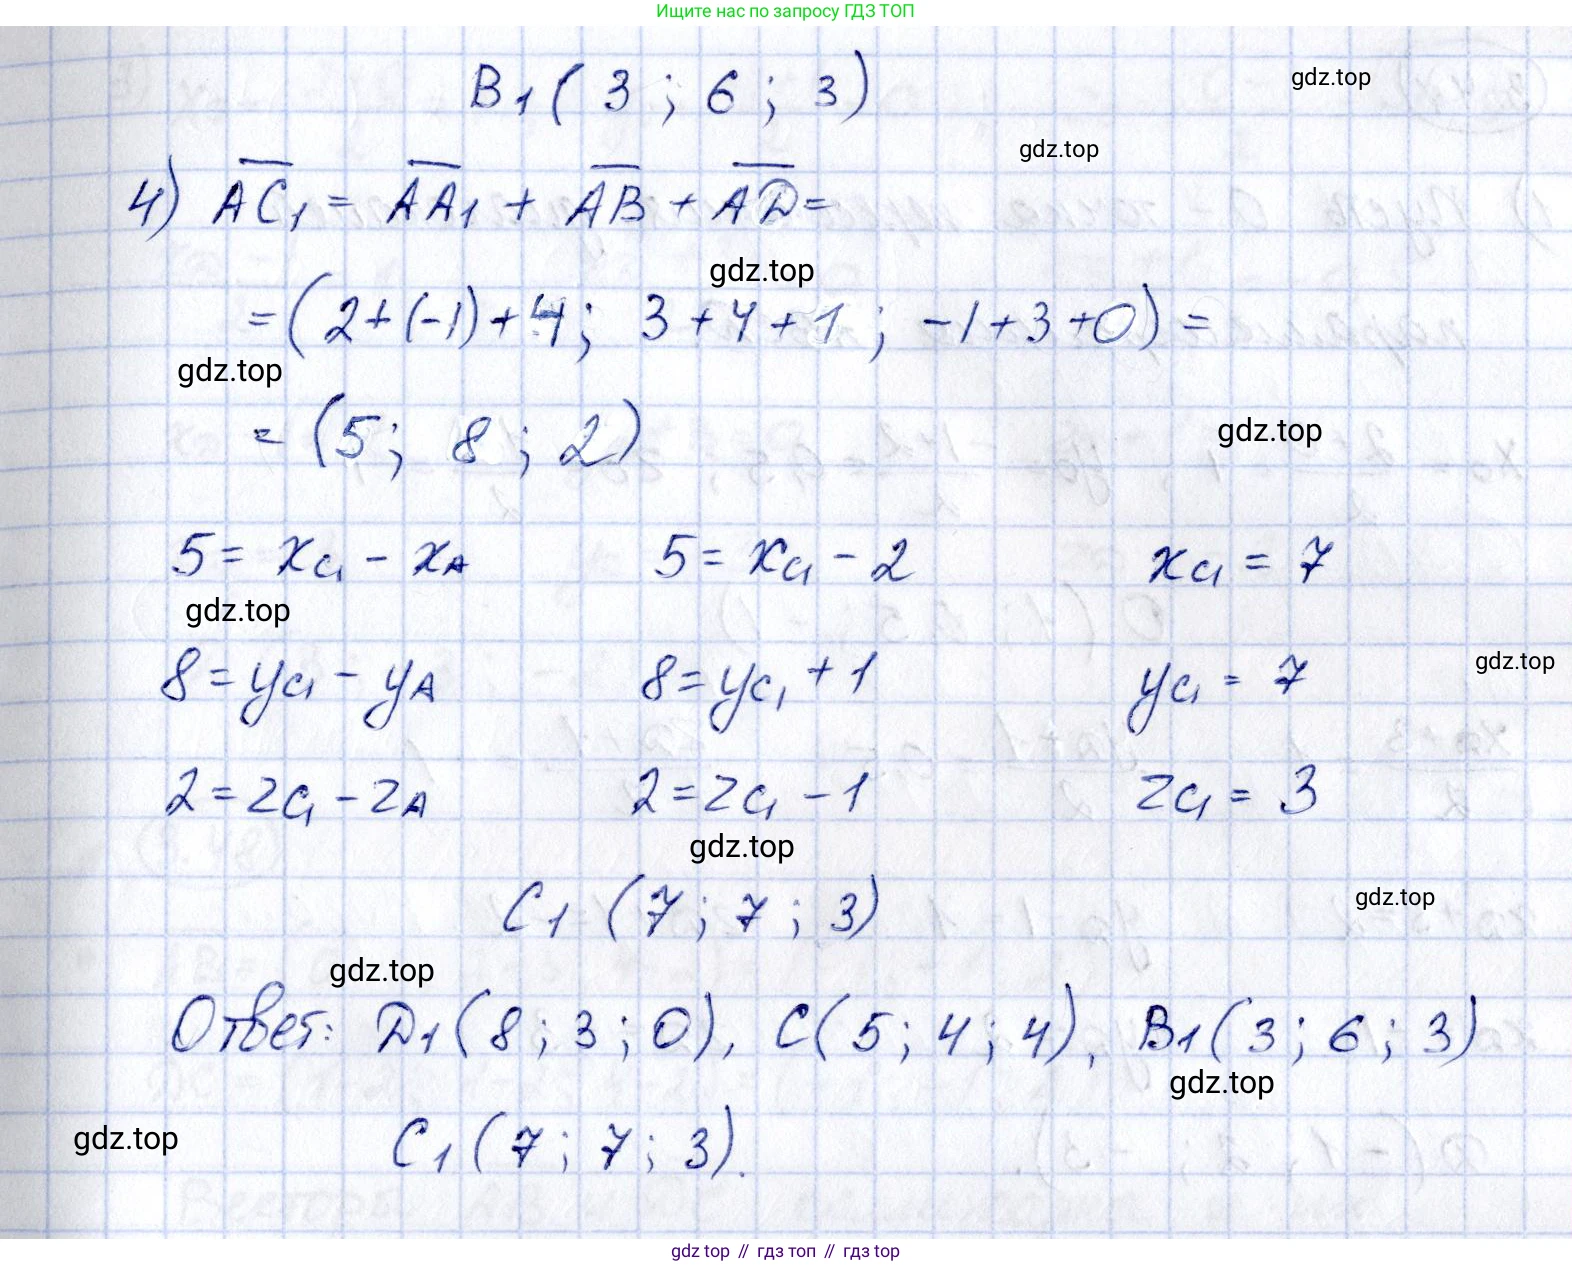 Ищите нас по запросу ГДЗ ТОП
B₁ ( 3 ; 6 ; 3 )
gdz.top
gdz.top
4) AC₁ = AA₁ + AB + AD =
gdz.top
= ( 2 + (-1) + 4 ; 3 + 4 + 1 ; -1 + 3 + 0 ) =
gdz.top
= ( 5 ; 8 ; 2 )
gdz.top
5 = x_C₁ - x_A 5 = x_C₁ - 2 x_C₁ = 7
gdz.top
8 = y_C₁ - y_A 8 = y_C₁ + 1 y_C₁ = 7
gdz.top
2 = z_C₁ - z_A 2 = z_C₁ - 1 z_C₁ = 3
gdz.top
C₁ ( 7 ; 7 ; 3 )
gdz.top
gdz.top
Ответ: D₁ ( 8 ; 3 ; 0 ), C ( 5 ; 4 ; 4 ), B₁ ( 3 ; 6 ; 3 )
gdz.top
C₁ ( 7 ; 7 ; 3 ).
gdz.top
gdz top // гдз топ // гдз top